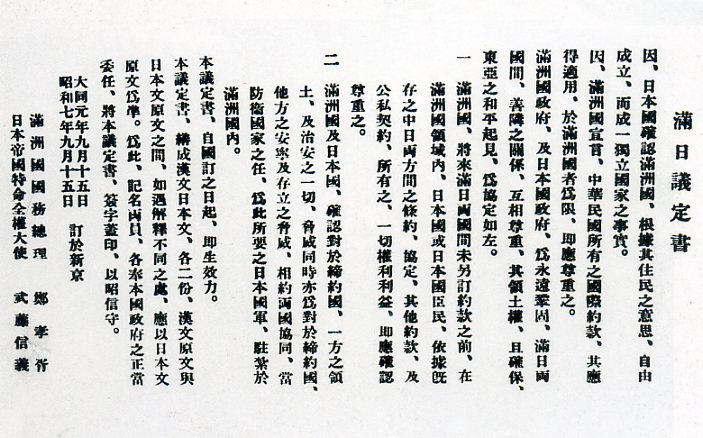 滿日議定書
因、日本國確認滿洲國、根據其住民之意思、自由
成立、而成一獨立國家之事實。
因、滿洲國宣言、中華民國所有之國際約款、其應
得適用、於滿洲國者爲限、即應尊重之。
滿洲國政府、及日本國政府、爲永遠鞏固、滿日兩
國間、善隣之關係、互相尊重、其領土權、且確保、
東亞之和平起見、爲協定如左。
一 滿洲國、將來滿日兩國間未另訂約款之前、在
滿洲國領域內、日本國或日本國臣民、依據旣
存之中日兩方間之條約、協定、其他約款、及
公私契約、所有之、一切權利利益、即應確認
尊重之。
二 滿洲國及日本國、確認對於締約國、一方之領
土、及治安之一切、脅威同時亦爲對於締約國、
他方之安寧及存立之脅威、相約兩國協同、當
防衛國家之任、爲此所要之日本國軍、駐紮於
滿洲國內。
本議定書、自國訂之日起、即生效力。
本議定書、繕成漢文日本文、各二份、漢文原文與
日本文原文之間、如遇解釋不同之處、應以日本文
原文爲準。爲此、記名兩員、各奉本國政府之正當
委任、將本議定書、簽字蓋印、以昭信守。
大同元年九月十五日
昭和七年九月十五日 訂於新京
滿洲國國務總理 鄭孝胥
日本帝國特命全權大使 武藤信義